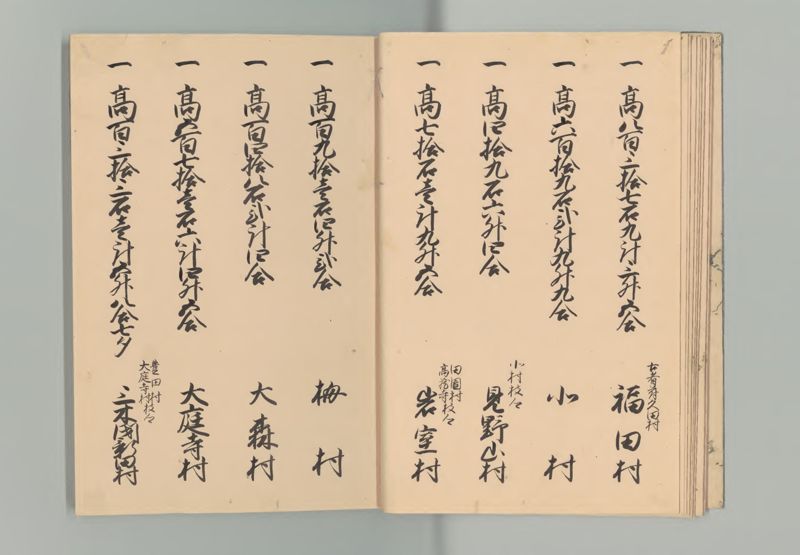 一 高八百三拾七石九斗三升六合
古者有久田村
福田村
一 高六百拾九石弐斗九升九合
小村
一 高四拾九石六升四合
小村枝々
見野山村
一 高七拾石壱斗九升六合
田園村
高蔵寺村枝々
岩室村
一 高百九拾壱石四升弐合
栂村
一 高百四拾八石弐斗四合
大森村
一 高六百七拾壱石六斗四升六合
大庭寺村
一 高百三拾三石壱斗六升八合七夕
豊田村
大庭寺村枝々
三木閉新田村